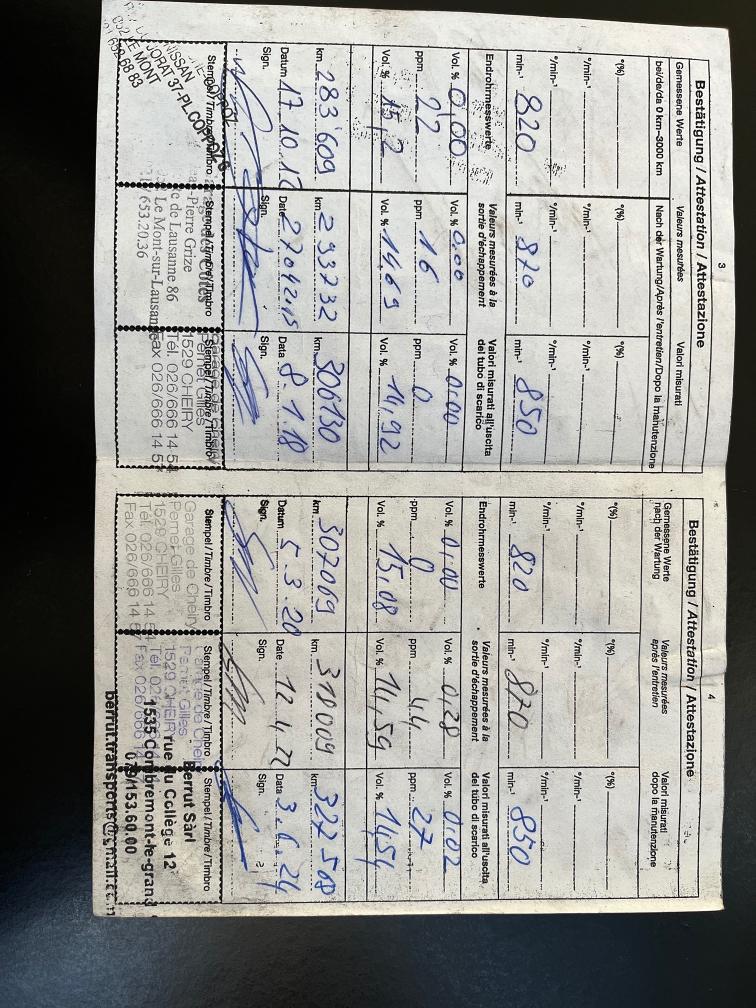 3
Bestätigung / Attestation / Attestazione
Gemessene Werte
bei/de/da 0 km–3000 km
Valeurs mesurées
Valori misurati
Nach der Wartung/Après l'entretien/Dopo la manutenzione
°(%)
°(%)
°(%)
°/min-¹
°/min-¹
°/min-¹
°/min-¹
°/min-¹
°/min-¹
min-¹ 820
min-¹ 820
min-¹ 850
Endrohrmesswerte
Valeurs mesurées à la
sortie d'échappement
Valori misurati all'uscita
del tubo di scarico
Vol. % 0,00
Vol. % 0.00
Vol. % 0.00
ppm 22
ppm 16
ppm 0
Vol. % 15,2
Vol. % 14,69
Vol. % 14,92
km 283'609
km 293732
km 306130
Datum 17.10.12
Date 270415
Data 8.1.18
Sign.
Sign.
Sign.
Stempel/Timbre/Timbro
Stempel/Timbre/Timbro
Stempel/Timbre/Timbro
NISSAN
JORAT 37-PL
LE MONT
652 68 83
-Pierre Grize
e de Lausanne 86
Le Mont-sur-Lausanne
653.20.36
Garage de Cheiry
Pernet Gilles
1529 CHEIRY
Tél. 026/666 14 54
Fax 026/666 14 5
4
Bestätigung / Attestation / Attestazione
Gemessene Werte
nach der Wartung
Valeurs mesurées
après l'entretien
Valori misurati
dopo la manutenzione
°(%)
°(%)
°(%)
°/min-¹
°/min-¹
°/min-¹
°/min-¹
°/min-¹
°/min-¹
min-¹ 820
min-¹ 870
min-¹ 850
Endrohrmesswerte
Valeurs mesurées à la
sortie d'échappement
Valori misurati all'uscita
del tubo di scarico
Vol. % 0,00
Vol. % 0,28
Vol. % 0,02
ppm 0
ppm 44
ppm 27
Vol. % 15,08
Vol. % 14,59
Vol. % 14,54
km 307069
km 318009
km 327508
Datum 5.3.20
Date 12.4.22
Data 3.6.24
Sign.
Sign.
Sign.
Stempel/Timbre/Timbro
Stempel/Timbre/Timbro
Stempel/Timbre/Timbro
Garage de Cheiry
Pernet Gilles
1529 CHEIRY
Tél. 026/666 14 5
Fax 026/666 14 5
Garage de Chei
Pernet Gilles
1529 CHEIRY
Tél. 026/666
Fax 026/666 1
Berrut Sàrl
rue du Collège 12
1535 Combremont-le-grand
079/153.60.00
berrut.transports@gmail.com